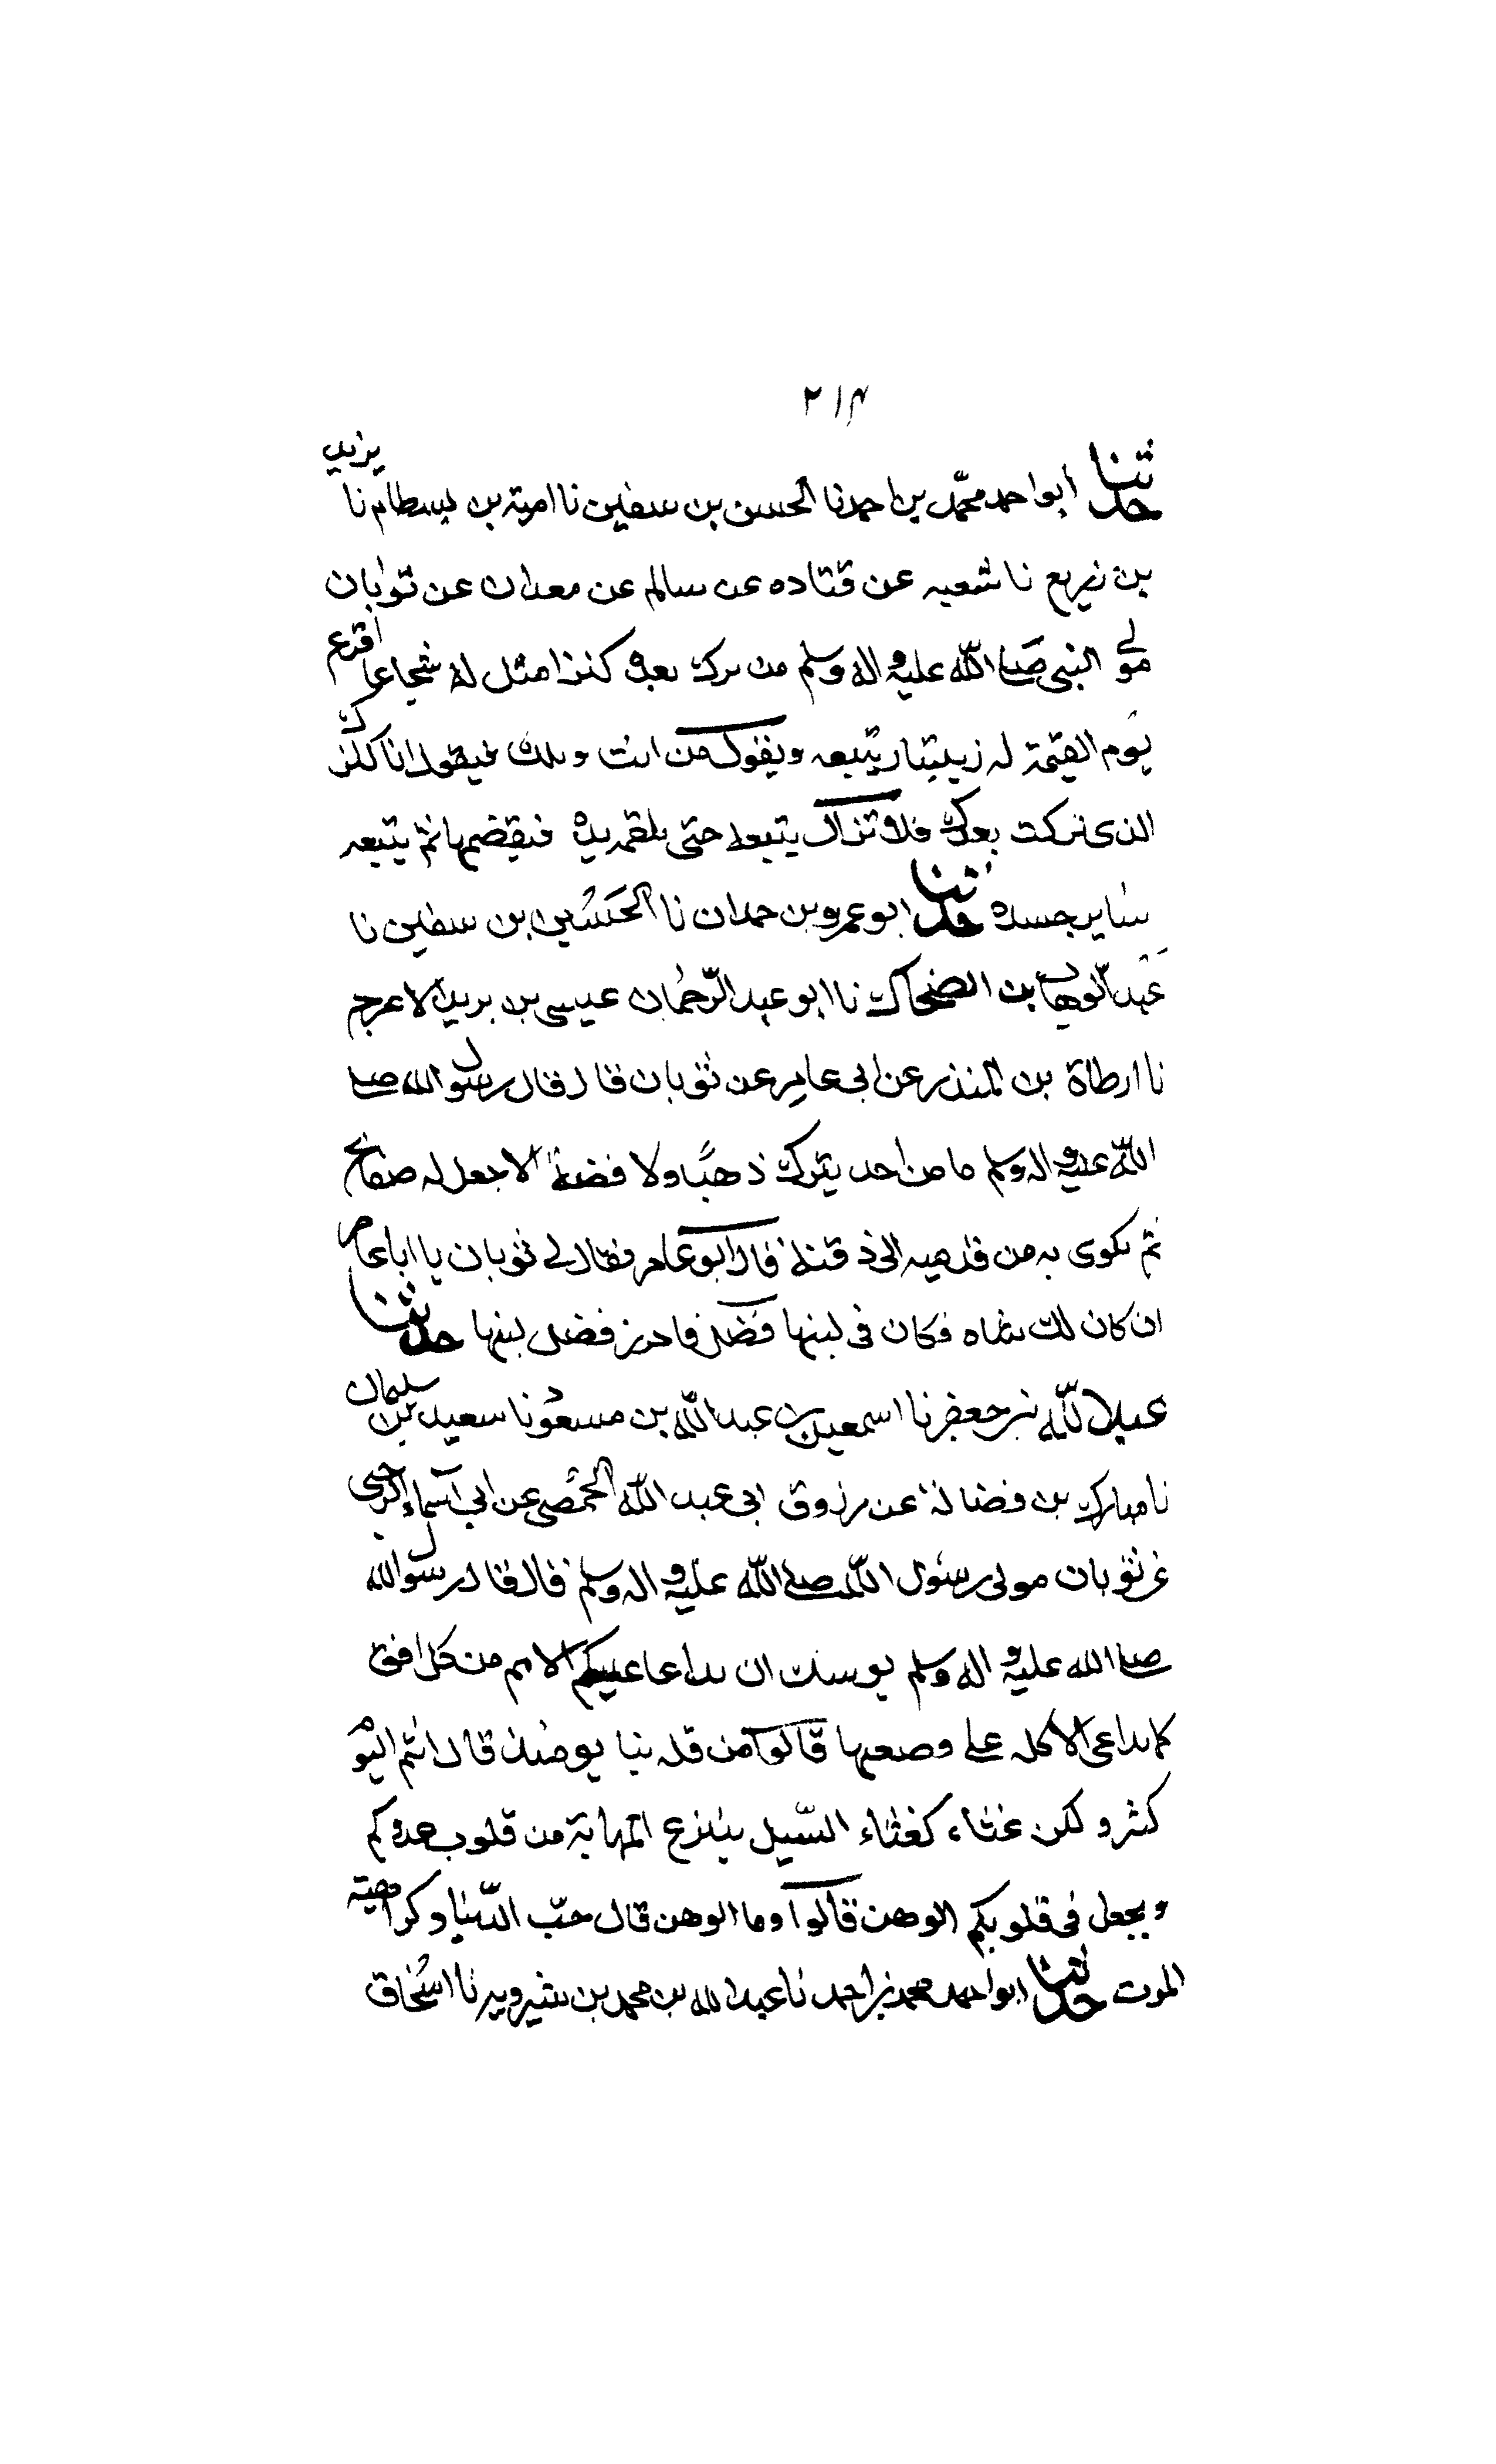 ٢١٤
حدثنا ابو احمد محمّد بن احمد نا الحسن بن سفين نا امية بن بسطام نا يزيد
بن زريع نا شعبه عن قتاده عن سالم عن معدان عن ثوبان
مولى النبى صلى اللّه عليه و اله وسلم من ترك بعده كنزا مثل له شجاعا اقرع
يوم القيمة له زبيبتان يتبعه ويقول من انت ويلك فيقول انا كنزك
الذى تركت بعدك فلا تزال يتبعه حتى يلقمه يده فيقضمها ثم يتبعه
ساير جسده حدثنا ابو عمرو بن حمدان نا الحَسَن بن سفين نا
عبد الوهاب بن الضحاك نا ابو عبد الرّحمان عيسى بن يزيد الاعرج
نا ارطاة بن المنذر عن ابى عامر عن ثوبان قال قال رسول الله صلى
اللّه عليه و اله وسلم ما من احد يترك ذهبًا ولا فضة الا جعل له صفائح
ثم يكوى به من قدميه الى ذقنه قال ابو عامر فقال لى ثوبان يا ابا عامر
ان كان لك شاه فكان فى لبنها فضل فاحرز فضل لبنها حدثنا
عبد اللّه بن جعفر نا اسمعيل بن عبد اللّه بن مسعود نا سعيد بن سليمان
نا مبارك بن فضالة عن مرزوق ابى عبد اللّه الحمصى عن ابى اسماء الرحبى
عن ثوبان مولى رسول اللّه صلى اللّه عليه و اله وسلم قال قال رسول الله
صلى الله عليه و اله وسلم يوشك ان تداعا عليكم الامم من كل افق
كما تداعى الاكله على قصعتها قالوا من قلة بنا يومئذ قال انتم اليوم
كثر و لكن غثاء كغثاء السّيل ينزع المهابة من قلوب عدوكم
ويجعل فى قلوبكم الوهن قالوا وما الوهن قال حبّ الدّنيا وكراهية
الموت حدثنا ابو احمد محمد بن احمد نا عبد الله بن محمد بن شيرويه نا اسحاق